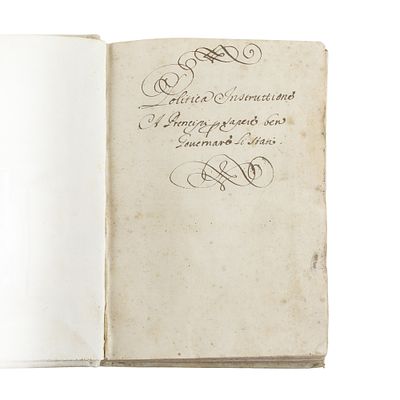 Politica Instruttione
A Prencipi p Sapere ben
Governare li Stati.